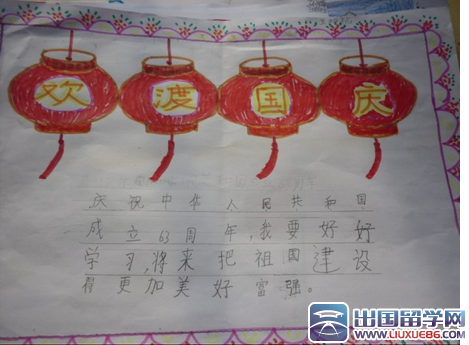 欢渡国庆
庆祝中华人民共和国
成立63周年,我要好好
学习,将来把祖国建设
得更加美好富强。
出国留学网
WWW.LIUXUE86.COM